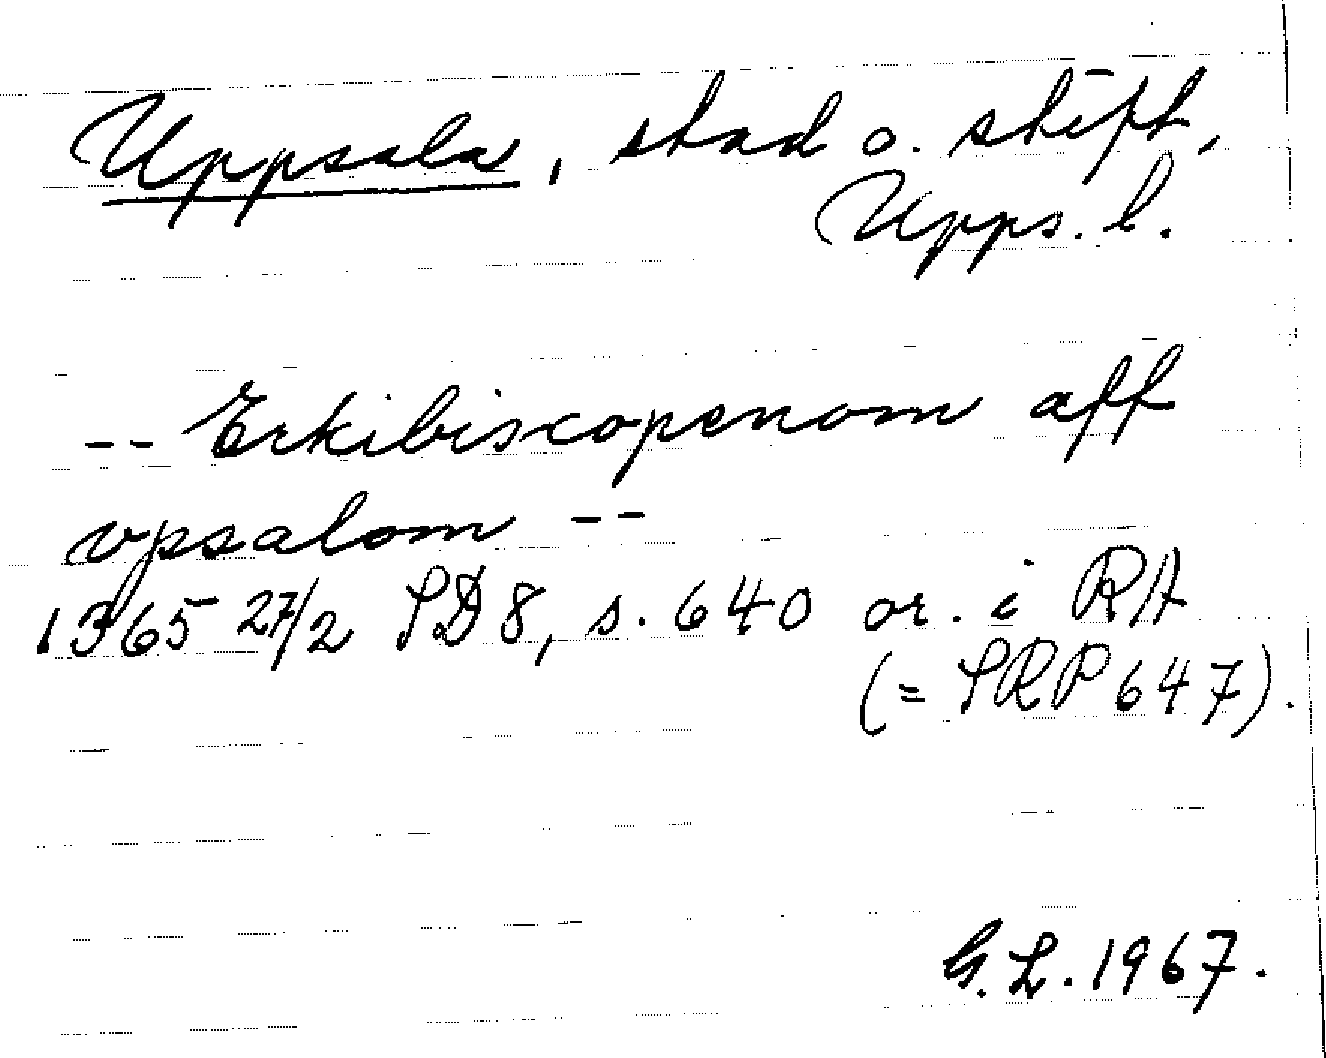 Uppsala, stad o. stift,
Upps. l.
-- Erkibiscopenom aff
vpsalom --
1365 27/2 SD 8, s. 640 or. i RA
(= SRP 647).
G. L. 1967.